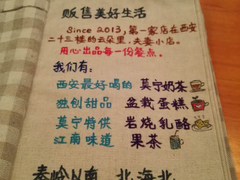 贩售美好生活
Since 2013,第一家店在西安
二十三楼的云朵里,夫妻小店。
用心出品每一份餐点。
我们有:
西安最好喝的 莫宁奶茶
独创甜品 盆栽蛋糕
莫宁特供 岩烧乳酪
江南味道 果茶
秦岭以南 北海北